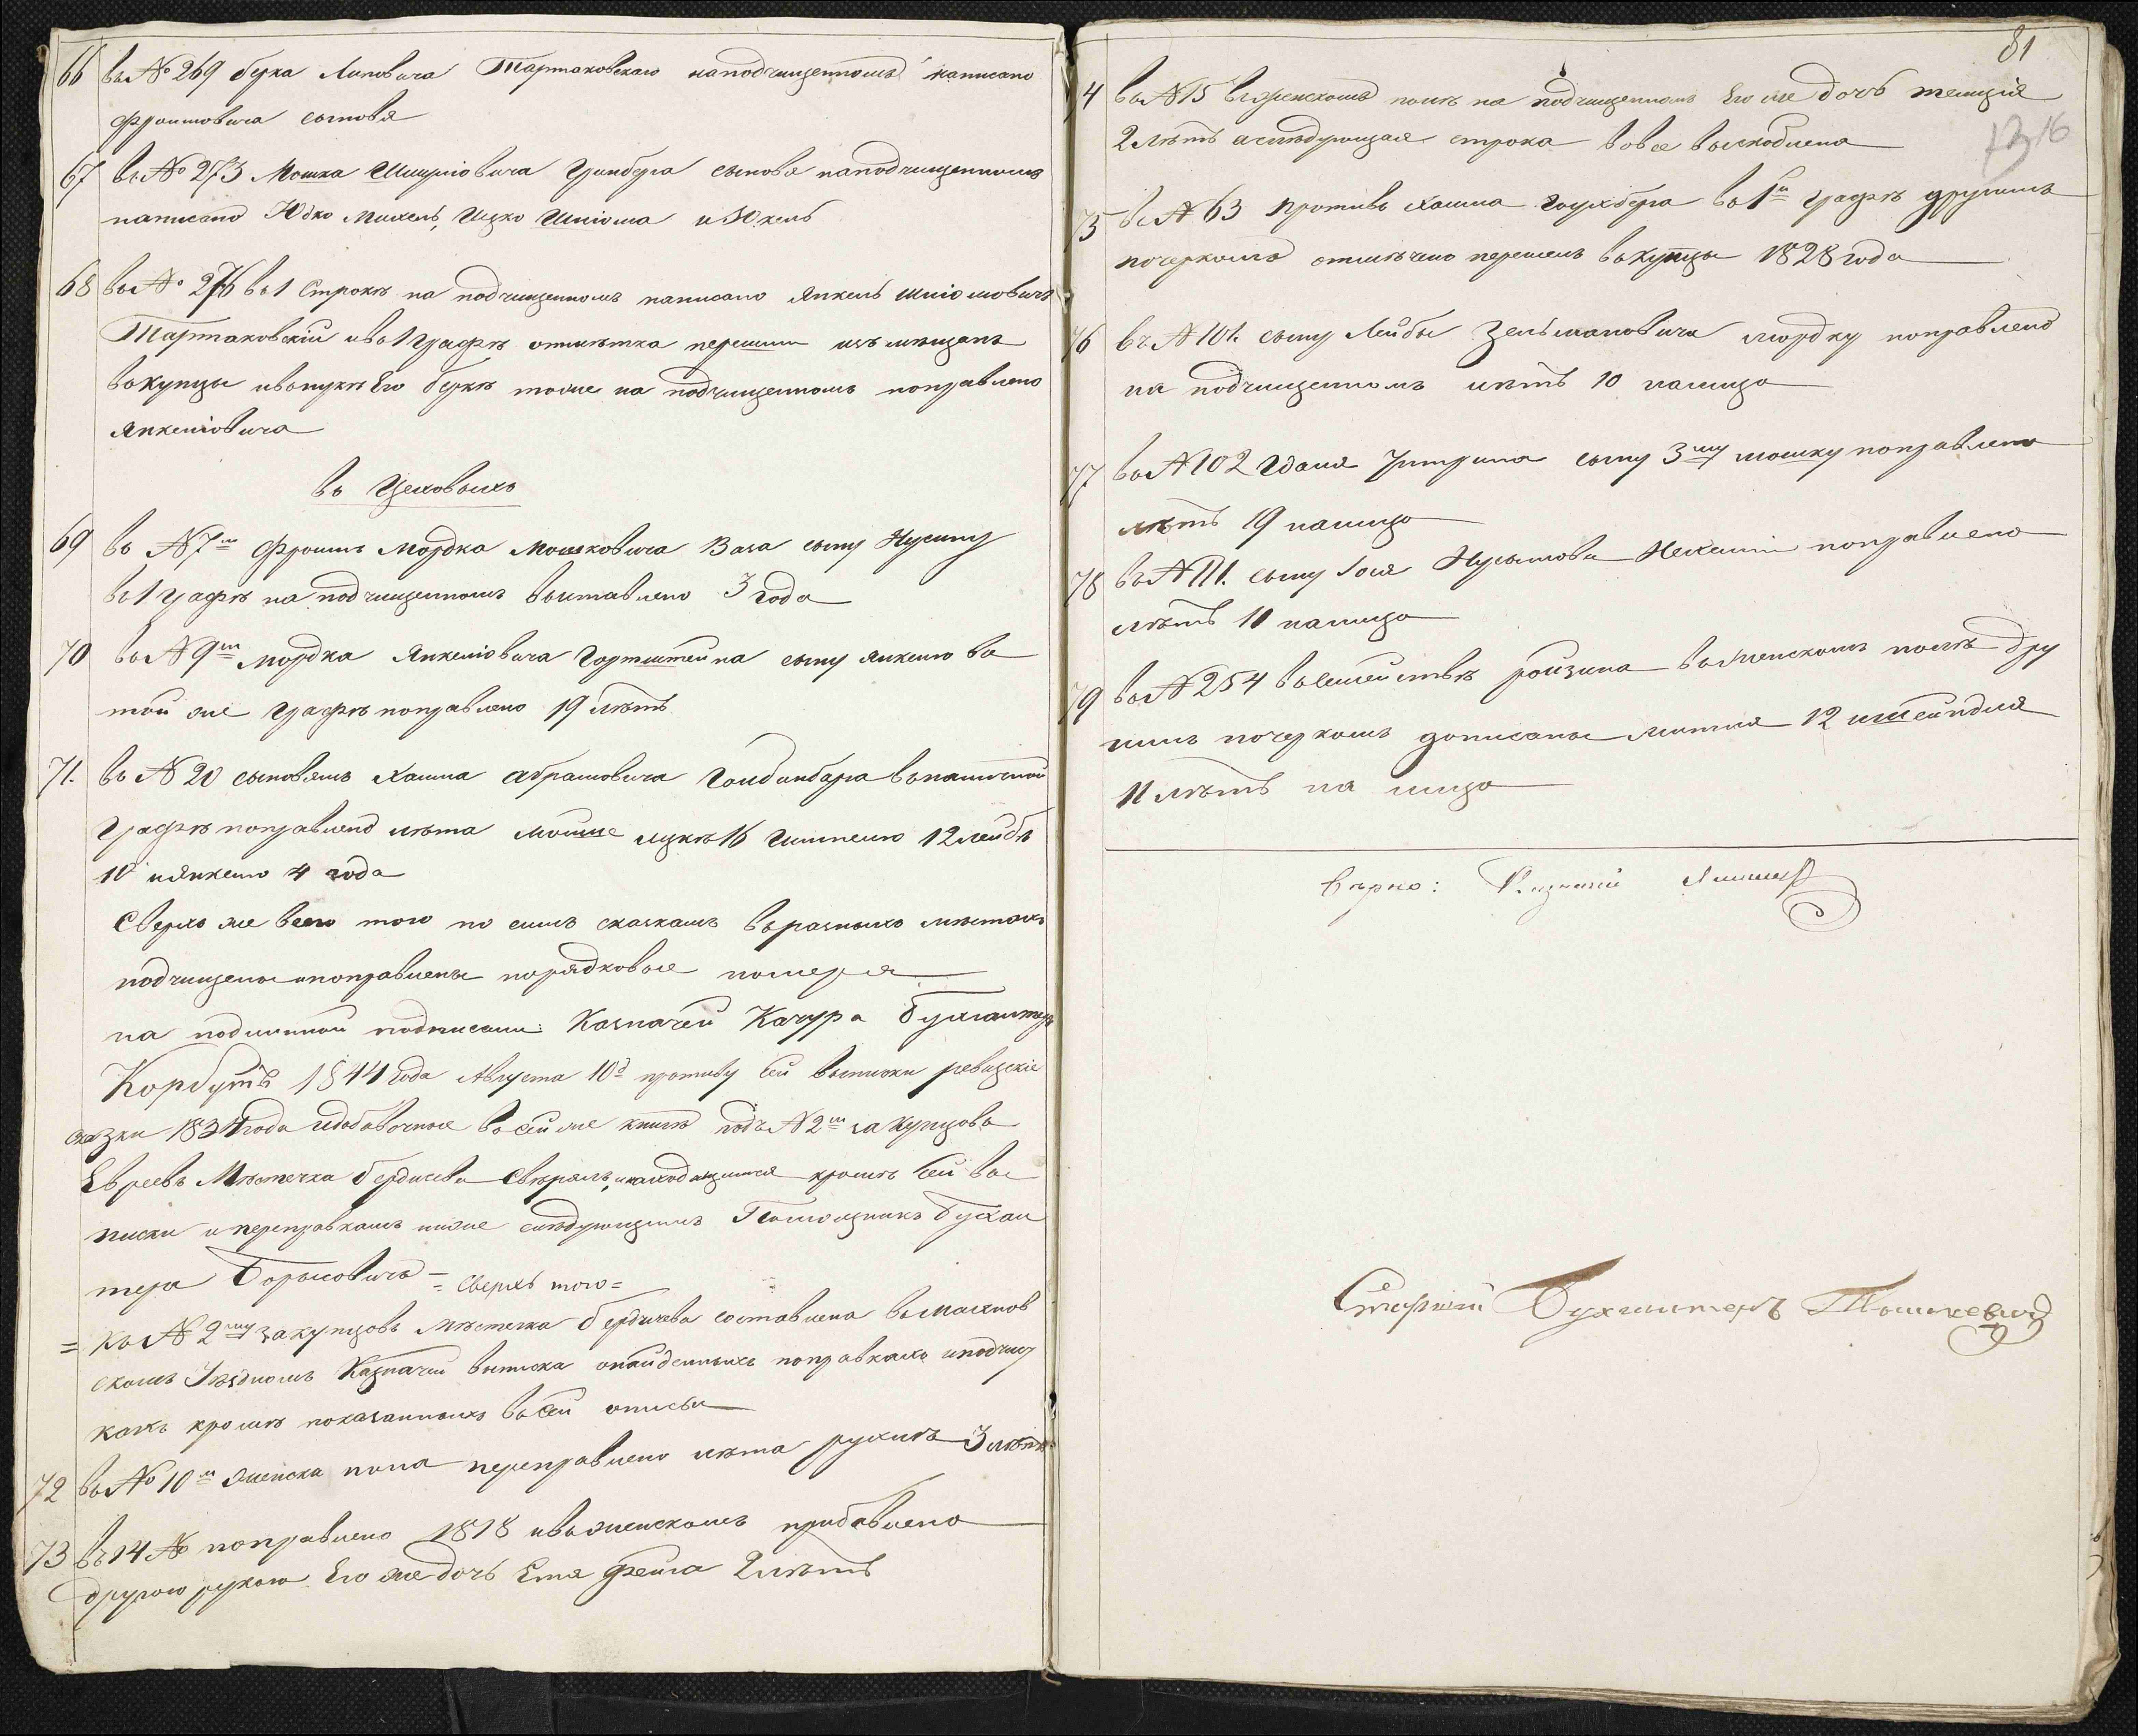 66 въ № 269 берка Липовича Тартаковскаго наподчищенномъ написано
Фроимовича сыновя
67 въ № 273 Мошка Шмулiовича Гринберга сыновя наподчищенномъ
написано Юдко Михель, Ицко Шлiома и Юкель
68 въ № 276 въ 1 Строкѣ на подчищенномъ написано Янкель Шлiомовичъ
Тартаковскiй ивъ 1 графѣ отмѣтка перешли изъ мѣщанъ
въкупцы ивънукѣ Его беркѣ тоже на подчищенномъ поправлено
Янкелiовича
въ Цеховыхъ
69 въ № 7м Фроимъ Мордка Мошковича Ваза сыну Нусину
въ 1 графѣ на подчищенномъ выставлено 3 года
70 въ № 9мъ Мордка Янкелiовича Горнштейна сыну Янкелю въ
той же графѣ поправлено 19 лѣтъ
71. въ № 20 сыновямъ Хаима Абрамовича Гольдинбера въналичной
графѣ поправлено лѣта Мошке Ицкѣ 16 Гимпелю 12 Лейбѣ
10 иЯнкелю 4 года
Сверхъ же всего того по симъ сказкамъ въразныхъ мѣстахъ
подчищены ипоправлены порядковые номера
на подлинной подписали: Казначей Качура бухгалтеръ
Корбутъ 1844 года Августа 10д противу сей выписки ревизскiе
сказки 1834 года идобавочные въсей же книгѣ подъ № 2м закупцовъ
Евреевъ Мѣстечка бердичева Свѣрялъ, инаходящимся кромѣ сей вы
писки ипереправкамъ ниже слѣдующимъ Помощникъ бухгал
тера Борысовичъ = сверхъ того =
= Къ № 2му закупцовъ мѣстечка бердичева составлена въмахнов
скомъ Уѣздномъ Казначей выписка онайденныхъ поправкахъ иподчист
кахъ кромѣ показанныхъ въсей описи
72 въ № 10м женска пола переправлено лѣта рухли 3 лѣтъ
73 въ 14 № поправлено 1818 ивъженскомъ прибавлено
другою рукою Его же дочь Етя Фейга 2 лѣтъ
81
4 въ № 15 въженскомъ полѣ на подчищенномъ Его же дочь
2 лѣтъ аслѣдующая строка вовсе выскоблена
75 въ № 63 противъ Хаима въ 1й графѣ другимъ
почеркомъ отмѣчено перешелъ въкупцы 1828 года
76 въ № 101. сыну Лейбы Зельмановича Мордку поправлено
на подчищенномъ лѣтъ 10 налицо
77 въ № 102 сыну 3му Мошку поправлено
лѣтъ 19 налицо
78 въ № 111. сыну Нусымова поправлено
лѣтъ 11 налицо
79 въ № 254 въсемействѣ ройзина въженскомъ полѣ дру
гимъ почеркомъ дописаны 12 ишейндля
11 лѣтъ на лицо
Вѣрно: Казначей
Старшiй Бухгалтеръ Тышкевичъ